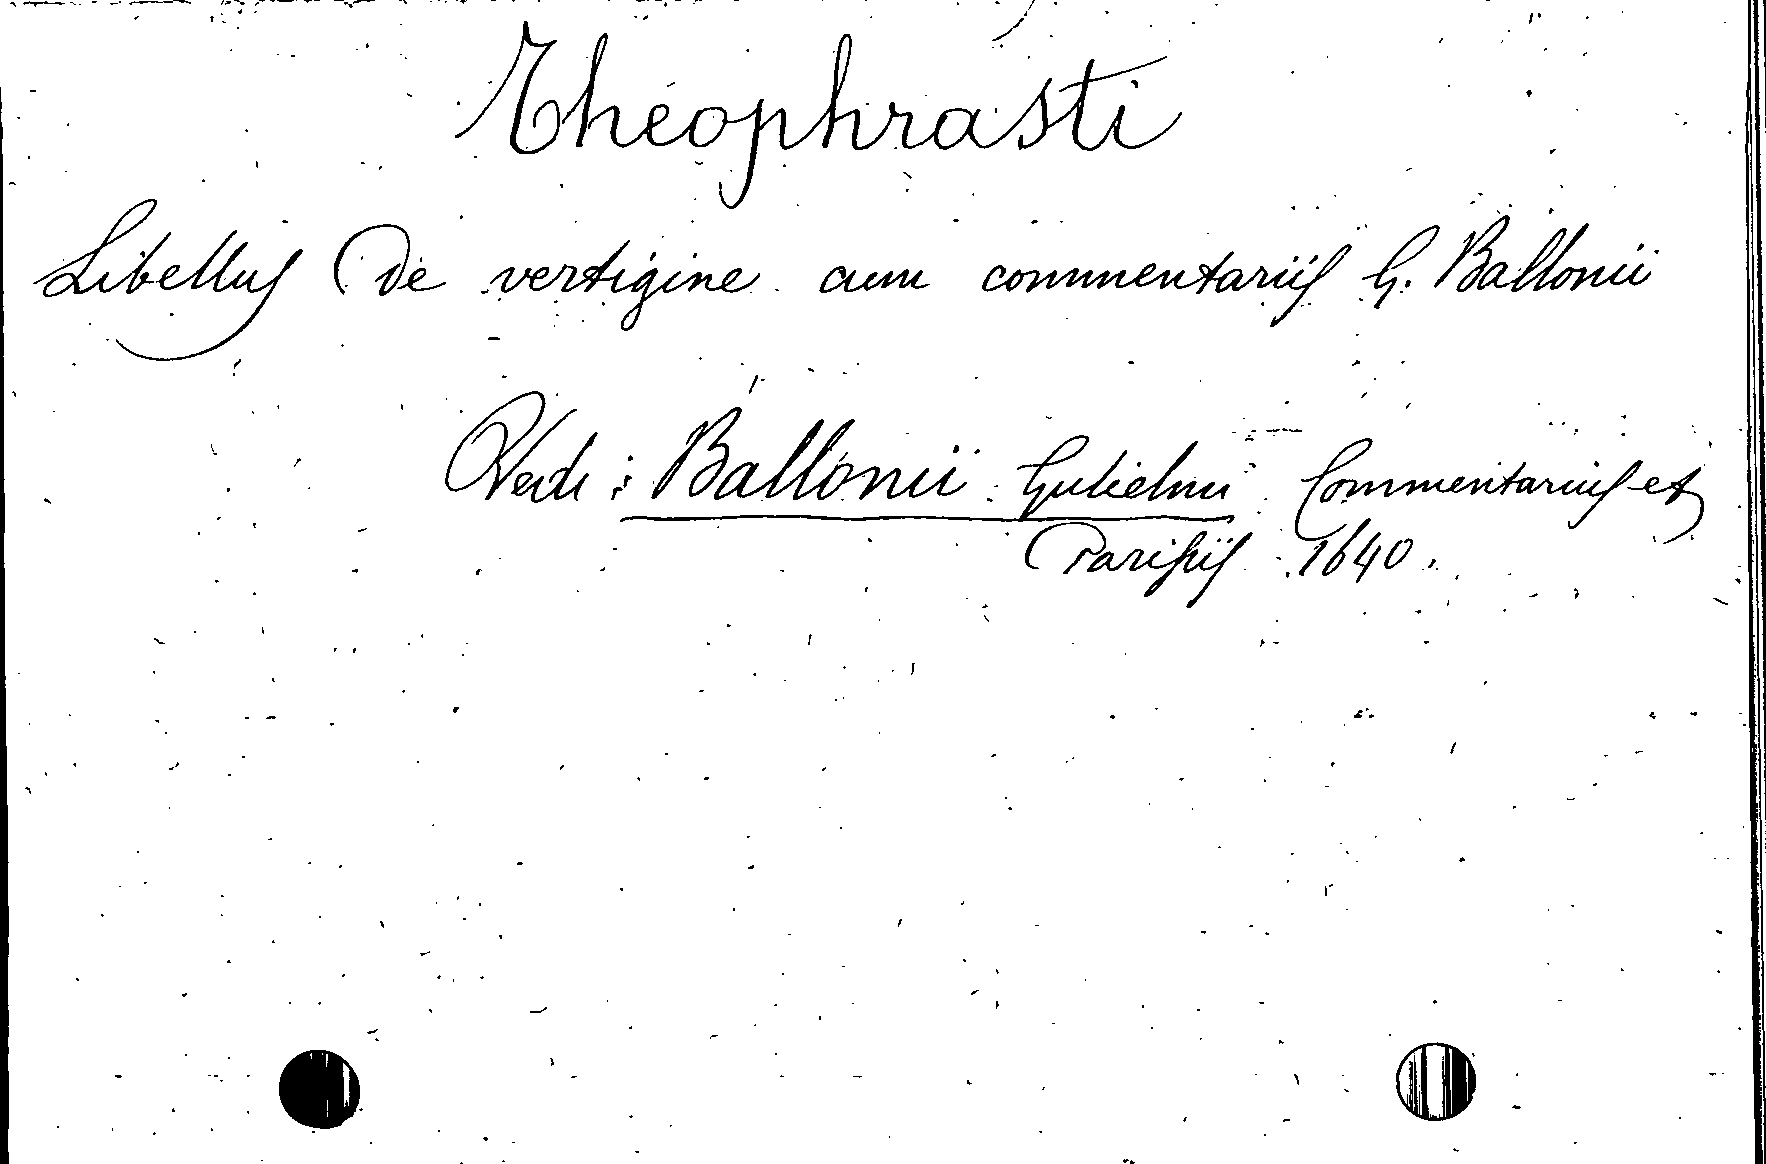 Theophrasti
Libellus de vertigine cum commentariis G. Ballonii
Vedi: Ballonii Gulielmi Commentarius et
Parisiis 1640.